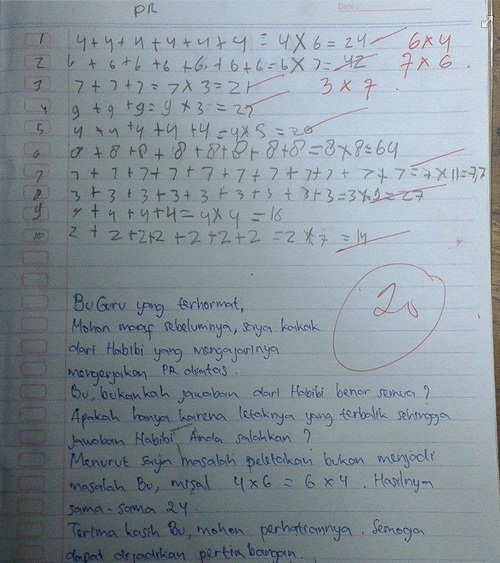 PR
Date :
1 4+4+4+4+4+4 = 4 x 6 = 24 6 x 4
2 6+6+6+6+6+6+6=6x7=42 7 x 6
3 7+7+7=7x3=21 3 x 7
4 9+9+9=9x3=27
5 4+4+4+4+4=4x5=20
6 8+8+8+8+8+8+8+8=8x8=64
7 7+7+7+7+7+7+7+7+7+7+7=7x11=77
8 3+3+3+3+3+3+3+3+3=3x9=27
9 4+4+4+4=4x4=16
10 2+2+2+2+2+2+2=2x7=14
20
Bu Guru yang terhormat,
Mohon maaf sebelumnya, saya kakak
dari Habibi yang mengajarinya
mengerjakan PR diatas.
Bu, bukankah jawaban dari Habibi benar semua?
Apakah hanya karena letaknya yang terbalik sehingga
jawaban Habibi Anda salahkan?
Menurut saya masalah peletakan bukan menjadi
masalah Bu, misal 4x6 = 6x4. Hasilnya
sama-sama 24.
Terima kasih Bu, mohon perhatiannya. Semoga
dapat dijadikan pertimbangan.